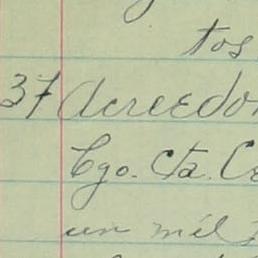 tos
37 Acreedor
Cgo. Cta. Co
un mil